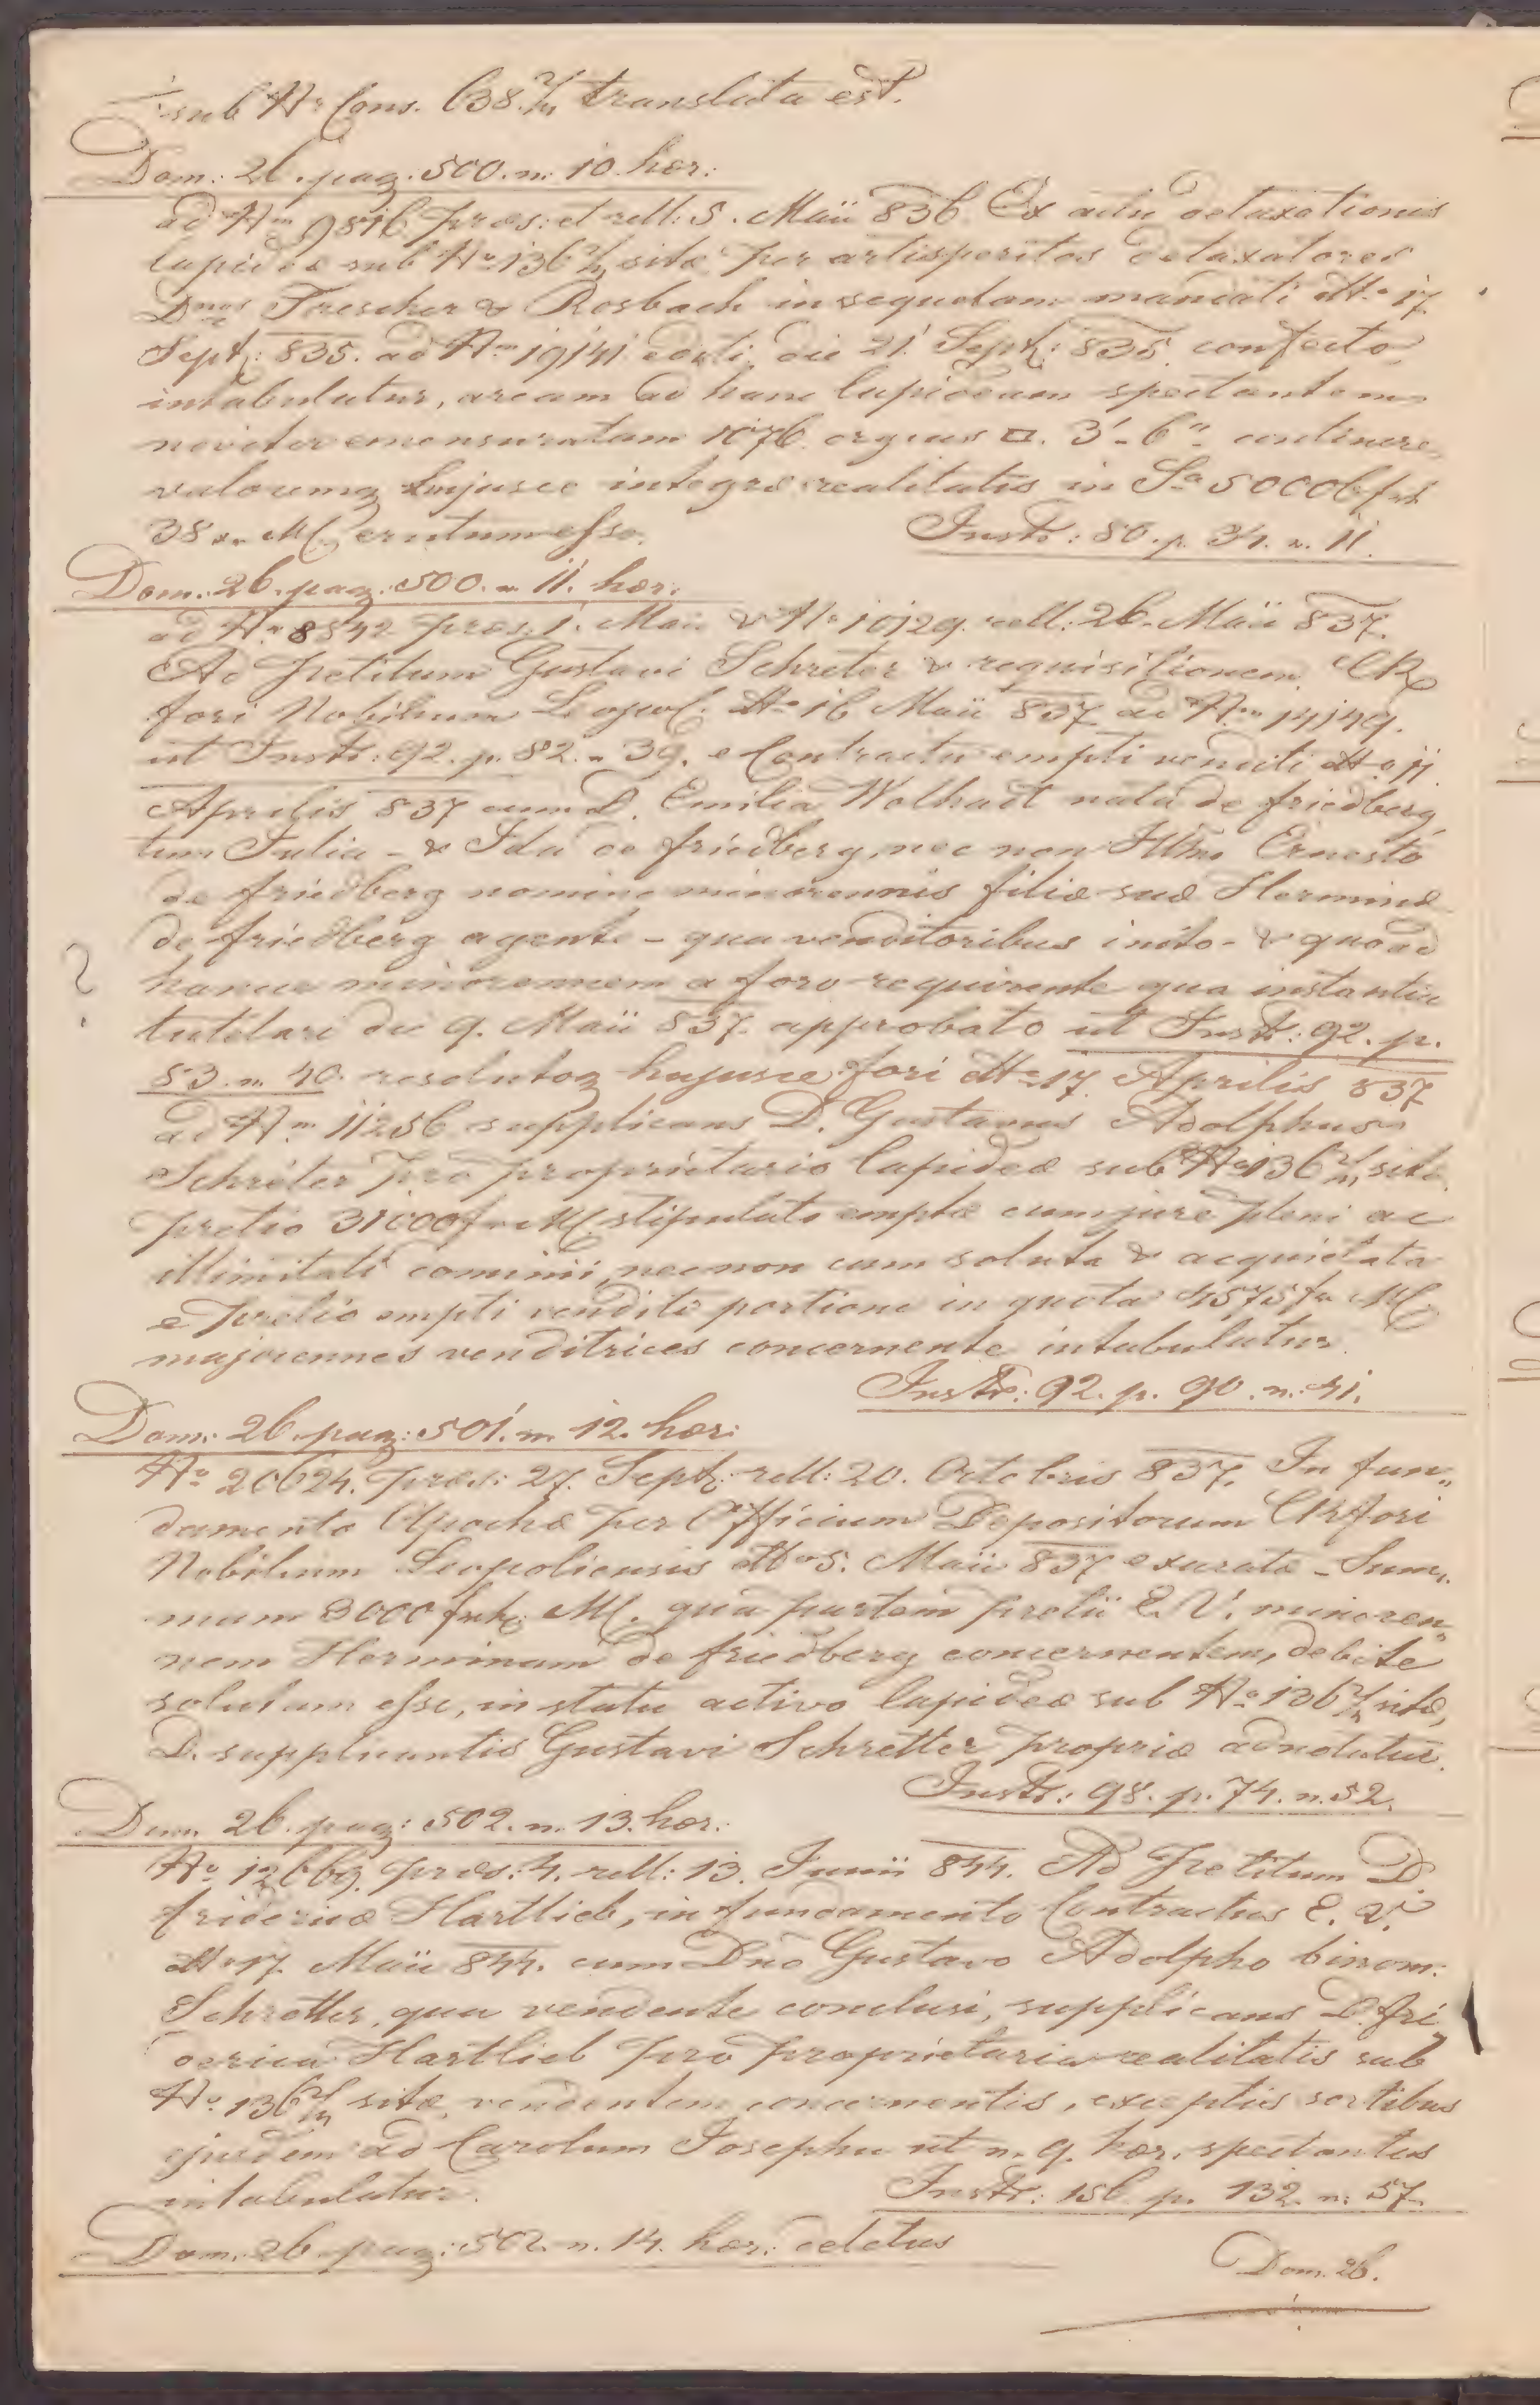 sub Nr Cons. 638 2/m translata est.
Dom: 26. pag: 500. n. 10. hær:
ad Num 9816 præs: et rell: 5. Maii 836. Ex actu detaxationis
lapideæ sub No 136 2/m sitæ per artisperitos detaxatores
Dnos Trescher & Rosbach in sequelam mandati ddto 17.
Septr: 835. ad Num 19141 editi, die 21. Septr: 835. confecto
intabulatur, aream ad hanc lapideam spectantem
noviter emensuratam 1076. orgias □. 3'- 6"- continere,
valoremq hujusce integræ realitatis in Sa 50006 fr
38 xr. M.C. erutum esse.
Instr: 80. p. 34. n. 11.
Dom: 26. pag: 500. n. 11. hær:
ad Nm 8842 præs: 1. Maii & No 10129. rell: 26. Maii 837.
Ad Petitum Gustavi Schreter & requisitionem CR
fori Nobilium Leopol: ddto 16 Maii 837 ad Num 14149.
ut Instr: 92. p. 82. n. 39. e Contractu empti venditi ddto 11.
Aprilis 837 cum D. Emilia Wolhart nata de Friedberg,
tum Julia - & Ida de Friedberg, nec non Illmo Ernesto
de Friedberg nomine minorennis filiæ suæ Herminæ
de Friedberg agente - qua venditoribus inito - & quoad
hancce minorennem a foro requirente qua instantia
tutelari die 9. Maii 837. approbato ut Instr: 92. p.
83. n. 40. resolutoq hujusce fori ddto 17. Aprilis 837
ad Num 11256 supplicans D. Gustavus Adolphus
Schréter pro proprietario lapideæ sub No 136 2/m sitæ
pretio 31000 fr M.C. stipulato emptæ cum jure pleni ac
illimitati dominii, nec non cum soluta & acquietata
e pretio empti venditi portione in quota 4575 fr M.C.
majorennes venditrices concernente intabulatur.
Instr: 92. p. 90. n. 41.
Dom: 26. pag: 501. n. 12. hær:
No 20624. præs: 27. Septr: rell: 20. Octobris 837. In fun„
damento Apochæ per Officium Depositorum CR fori
Nobilium Leopoliensis ddto 5. Maii 837 exaratæ - Sum„
mam 3000 fr M.C. qua partem pretii E. V. minoren„
nem Herminam de Friedberg concernentem, debite
solutam esse, in statu activo lapideæ sub No 136 2/m sitæ,
D. supplicantis Gustavi Schretter propriæ adnotatur.
Instr: 98. p. 74. n. 52.
Dom. 26. pag: 502. n. 13. hær:
No 12669. præs: 4. rell: 13. Junii 844. Ad Petitum D.
Fridericæ Hartlieb, in fundamento Contractus E. V.
ddto 17. Maii 844. cum Dno Gustavo Adolpho binom:
Schretter, qua vendente conclusi, supplicans D. Fri„
derica Hartlieb pro proprietaria realitatis sub
No 136 2/m sitæ vendentem concernentis, exceptis sortibus
ejusdem ad Carolum Josephum ut n. 9. hær. spectantes
intabulatur.
Instr: 156. p. 132. n. 57.
Dom. 26. pag: 502. n. 14. hær: deletus
Dom. 26.